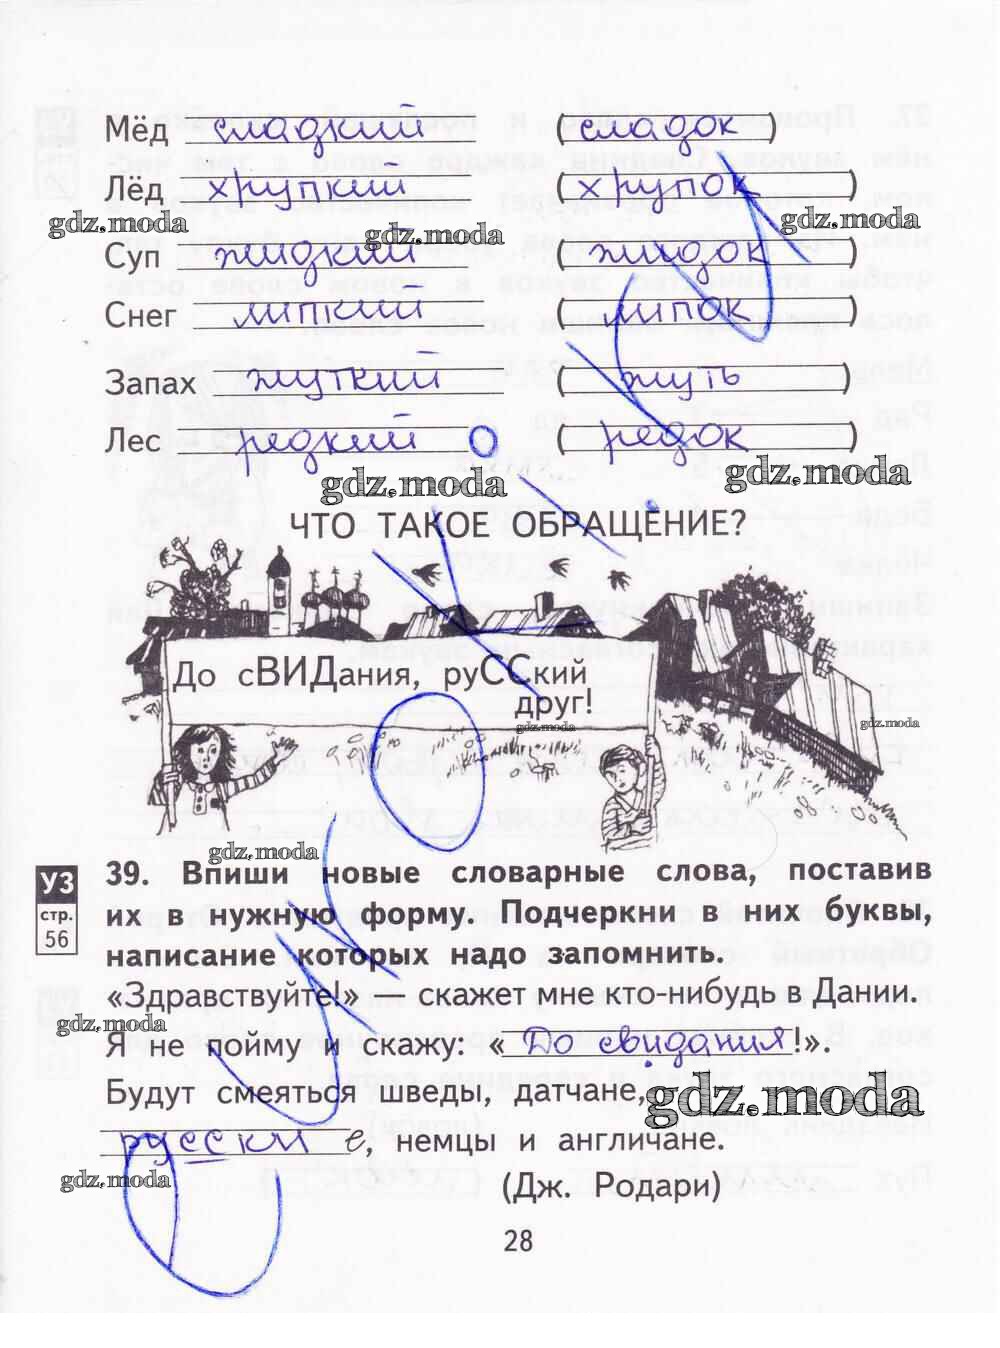 Мёд сладкий (сладок)
Лёд хрупкий (хрупок)
gdz.moda gdz.moda gdz.moda
Суп жидкий (жидок)
Снег липкий (липок)
Запах жуткий (жуть)
Лес редкий (редок)
gdz.moda gdz.moda
ЧТО ТАКОЕ ОБРАЩЕНИЕ?
До сВИДания, руССкий
друг!
gdz.moda gdz.moda
gdz.moda
УЗ
стр.
56
39. Впиши новые словарные слова, поставив
их в нужную форму. Подчеркни в них буквы,
написание которых надо запомнить.
«Здравствуйте!» — скажет мне кто-нибудь в Дании.
gdz.moda
Я не пойму и скажу: «До свидания!».
Будут смеяться шведы, датчане,
gdz.moda
русские, немцы и англичане.
gdz.moda
(Дж. Родари)
28